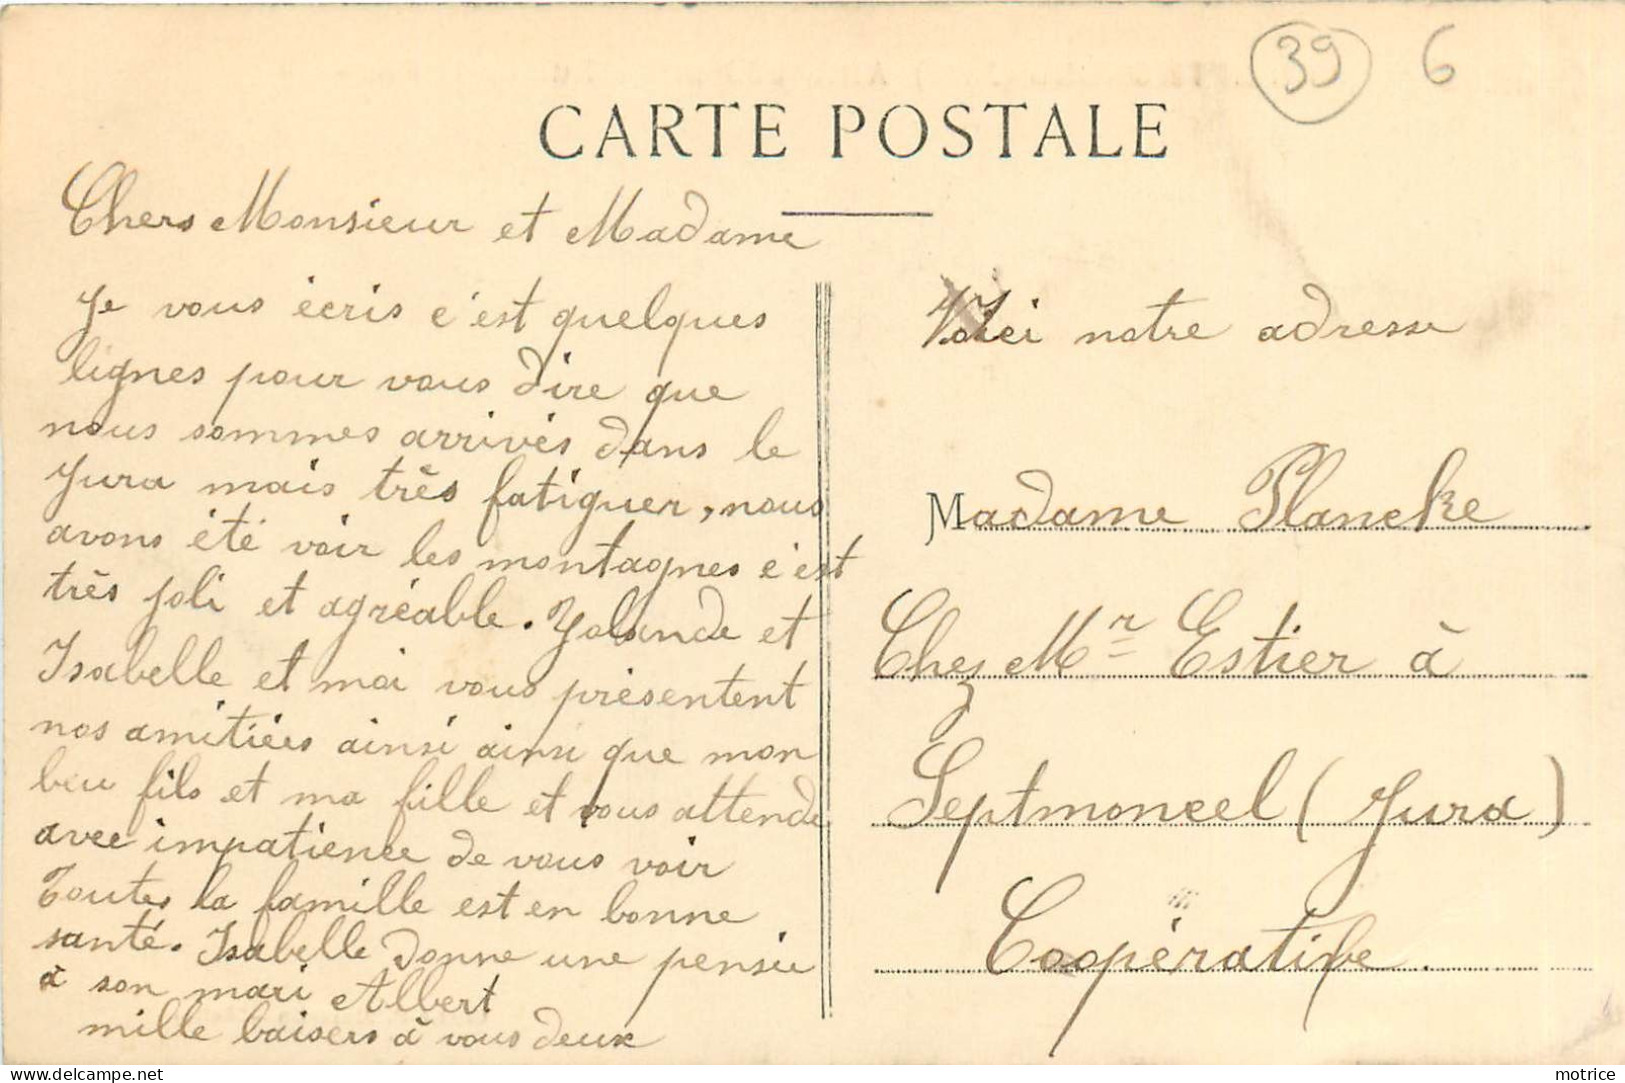 39 6
CARTE POSTALE
Chers Monsieur et Madame
Je vous écris c'est quelques
lignes pour vous dire que
nous sommes arrivés dans le
Jura mais très fatiguer, nous
avons été voir les montagnes c'est
très joli et agréable. Yolande et
Isabelle et moi vous présentent
nos amitiées ainsi ainsi que mon
beu fils et ma fille et vous attende
avec impatience de vous voir
Toutes la famille est en bonne
santé. Isabelle donne une pensée
à son mari Albert
mille baisers à vous deux
Voici notre adresse
Madame Plancke
Chez Mr Estier à
Septmoncel (Jura)
Coopérative.
motrice